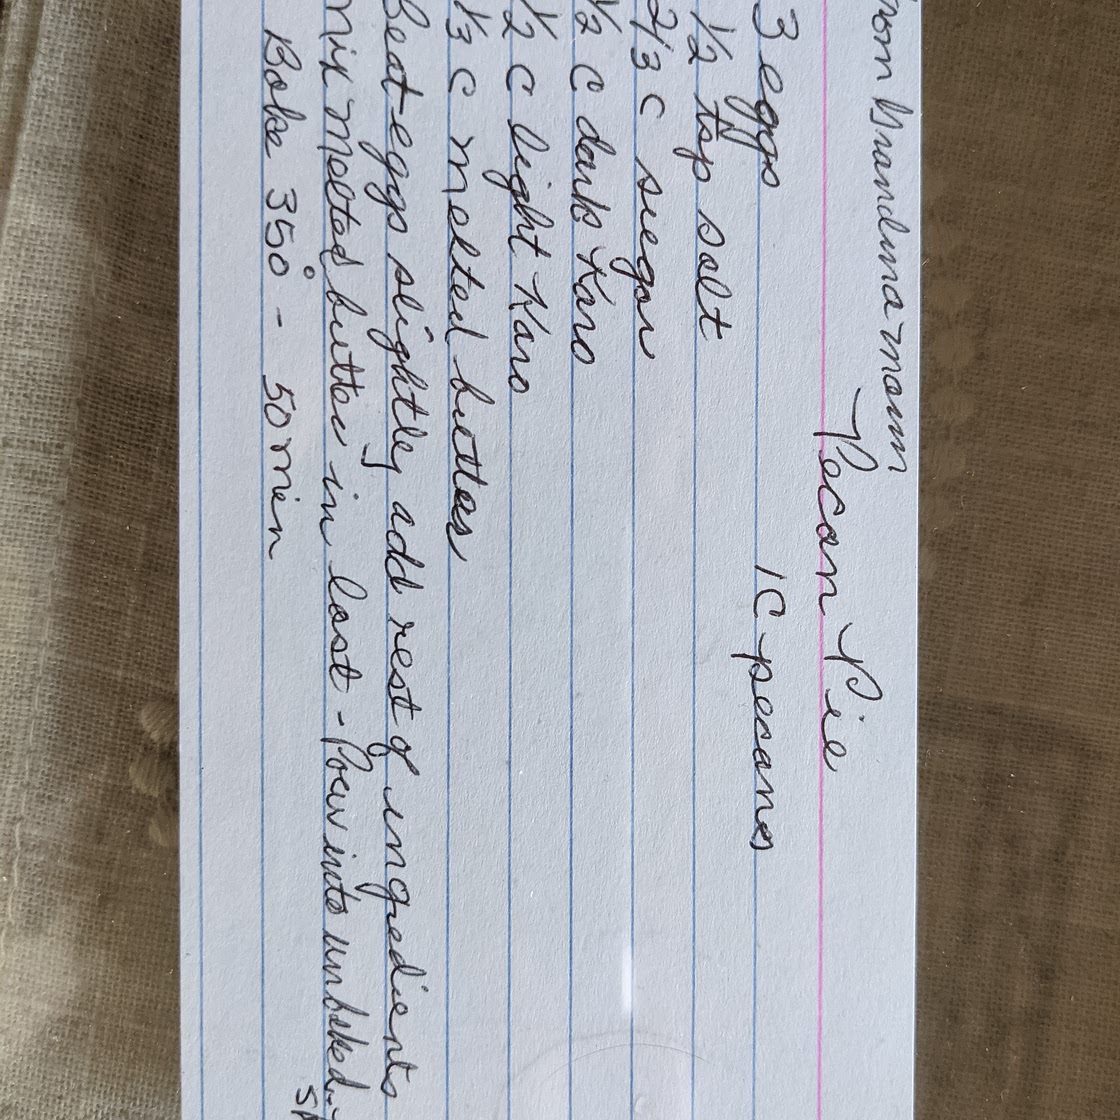 Pecan Pie
3 eggs 1 C pecans
1/2 tsp salt
2/3 c sugar
1/2 c dark Karo
1/2 c light Karo
1/3 c melted butter
Beat eggs slightly, add rest of ingredients
mix melted butter in last - Pour into unbaked
Bake 350° - 50 min